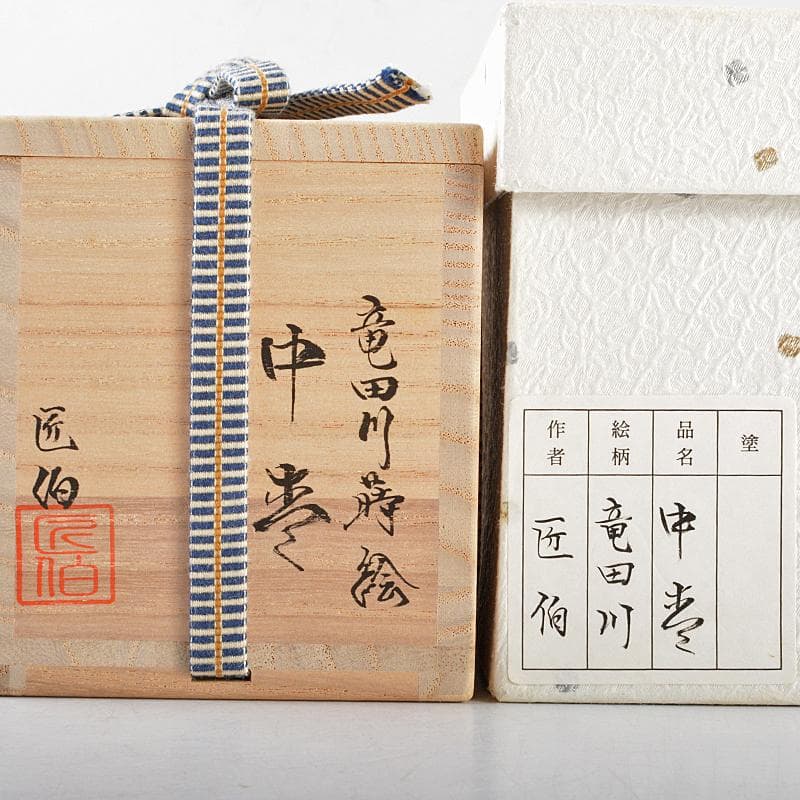 竜田川蒔絵
中棗
匠伯
匠伯
塗
品名
中棗
絵柄
竜田川
作者
匠伯